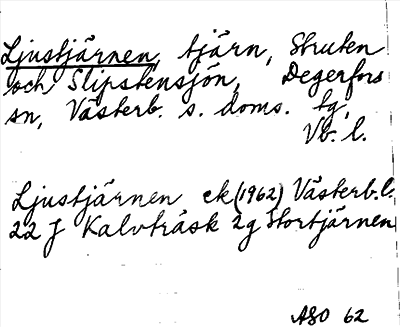 Ljustjärnen, tjärn, Struten
och Slipstensjön, Degerfors
sn, Västerb. s. doms. tg,
Vb. l.
Ljustjärnen ek (1962) Västerb.l.
22 J Kalvträsk 2g Stortjärnen
ASO 62